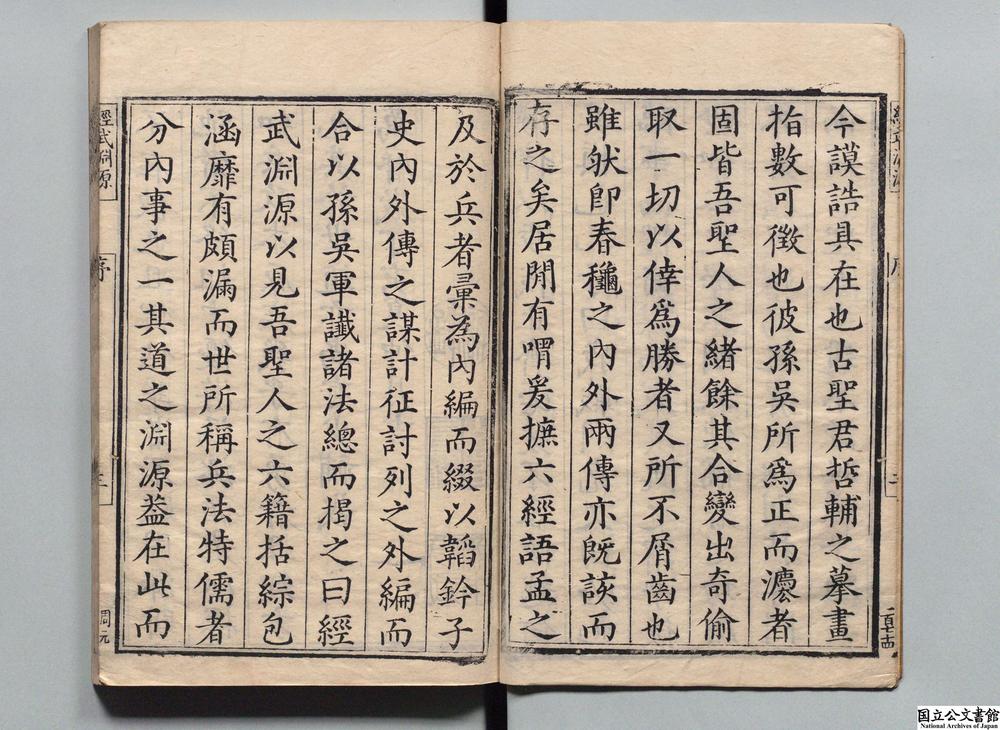 今謨誥具在也古聖君哲輔之摹畫
指數可徵也彼孫吳所爲正而灋者
固皆吾聖人之緒餘其合變出奇偷
取一切以倖爲勝者又所不屑齒也
雖肰卽春龝之內外兩傳亦旣該而
存之矣居閒有喟爰摭六經語孟之
及於兵者彙為內編而綴以韜鈐子
史內外傳之謀計征討列之外編而
合以孫吳軍讖諸法總而揭之曰經
武淵源以見吾聖人之六籍括綜包
涵靡有頗漏而世所稱兵法特儒者
分內事之一其道之淵源葢在此而
經武淵源
序
三
周元
国立公文書館
National Archives of Japan